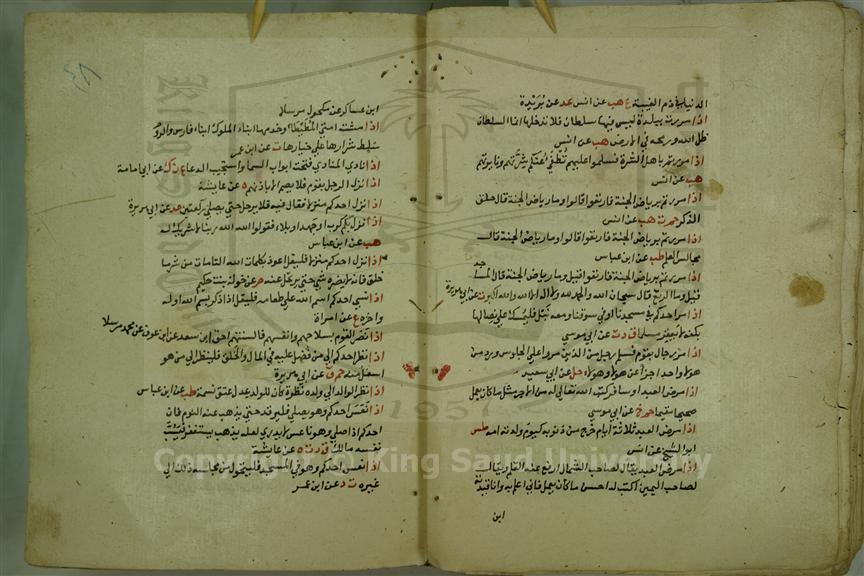 الدنيا في ذم الغيبة ع هب عن انس عد عن بريدة
اذا مررت ببلدة ليس فيها سلطان فلا تدخلها انما السلطان
ظل الله ورمحه في الارض هب عن انس
اذا مررتم باهل الشرة فسلموا عليهم تطفئ عنكم شرتهم ونايرتهم
هب عن انس
اذا مررتم برياض الجنة فارتعوا قالوا وما رياض الجنة قال حلق
الذكر حم ت هب عن انس
اذا مررتم برياض الجنة فارتعوا قالوا وما رياض الجنة قال
مجالس العلم طب عن ابن عباس
اذا مررتم برياض الجنة فارتعوا قيل وما رياض الجنة قال المساجد
قيل وما الرتع قال سبحان الله والحمد لله ولا اله الا الله والله اكبر ت عن ابي هريرة
اذا مر احدكم في مسجدنا او في سوقنا ومعه نبل فليمسك على نصالها
بكفه لا يعقر مسلما ق د ه عن ابي موسى
اذا مر رجال بقوم فسلم رجل من الذين مروا على الجلوس ورد من
هؤلاء واحد اجزأ عن هؤلاء وهؤلاء حل عن ابي سعيد
اذا مرض العبد او سافر كتب الله تعالى له من الاجر مثل ما كان يعمل
صحيحا مقيما حم خ عن ابي موسى
اذا مرض العبد ثلاثة ايام خرج من ذنوبه كيوم ولدته امه طس
ابو الشيخ عن انس
اذا مرض العبد يقال لصاحب الشمال ارفع عنه القلم ويقال
لصاحب اليمين اكتب له احسن ما كان يعمل فاني اعلم به وانا قيدته
ابن
ابن عساكر عن مكحول مرسلا
اذا مشت امتي المطيطا وخدمها ابناء الملوك ابناء فارس والروم
سلط شرارها على خيارها ت عن ابن عمر
اذا نادى المنادي فتحت ابواب السما واستجيب الدعا ع ك عن ابي امامة
اذا نزل الرجل بقوم فلا يصم الا باذنهم ه عن عايشة
اذا نزل احدكم منزلا فقال فيه فلا يرحل حتى يصلي ركعتين عد عن ابي هريرة
اذا نزل بكم كرب او جهد او بلاء فقولوا الله الله ربنا لا شريك له
هب عن ابن عباس
اذا نزل احدكم منزلا فليقل اعوذ بكلمات الله التامات من شر ما
خلق فانه لا يضره شي حتى يرتحل عنه م عن خولة بنت حكيم
اذا نسي احدكم اسم الله على طعامه فليقل اذا ذكر بسم الله اوله
واخره ع عن امراة
اذا نصر القوم بسلاحهم وانفسهم فالسنتهم احق ابن سعد عن ابن عوف عن محمد مرسلا
اذا نظر احدكم الى من فضل عليه في المال والخلق فلينظر الى من هو
اسفل منه حم ق عن ابي هريرة
اذا نظر الوالد الى ولده نظرة كان للولد عدل عتق نسمة طب عن ابن عباس
اذا نعس احدكم وهو يصلي فليرقد حتى يذهب عنه النوم فان
احدكم اذا صلى وهو ناعس لا يدري لعله يذهب يستغفر فيسب
نفسه مالك ق د ت ه عن عايشة
اذا نعس احدكم وهو في المسجد فليتحول من مجلسه ذلك الى
غيره د ت عن ابن عمر
Copyright © King Saud University
1957